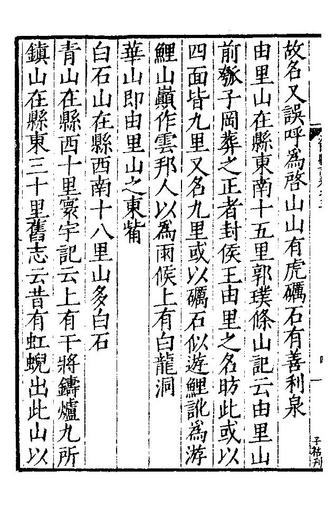 故名又誤呼為啓山山有虎礪石有善利泉
由里山在縣東南十五里郭璞條山記云由里山
前瓞子岡葬之正者封侯王由里之名昉此或以
四面皆九里又名九里或以礪石似遊鯉訛為游
鯉山巔作雲邦人以為雨候上有白龍洞
華山即由里山之東觜
白石山在縣西南十八里山多白石
青山在縣西十里寰宇記云上有干將鑄爐九所
鎮山在縣東三十里舊志云昔有虹蜺出此山以